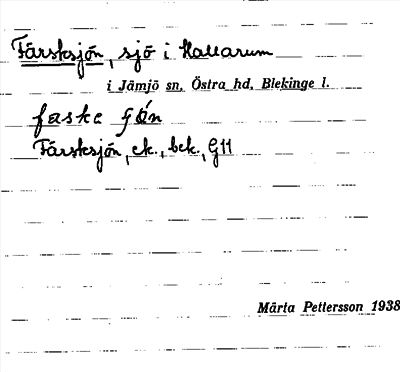 Färsksjön, sjö i Hallarum
i Jämjö sn, Östra hd, Blekinge l.
faske fjón
Färsksjön, ek., bek., G11
Märta Pettersson 1938